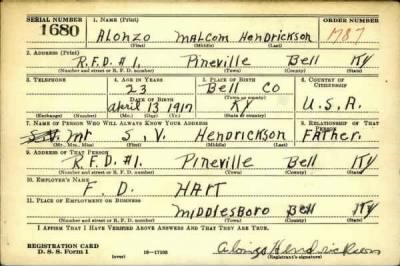 SERIAL NUMBER 1. NAME (Print) ORDER NUMBER
1680 Alonzo Malcom Hendrickson 1787
(First) (Middle) (Last)
2. ADDRESS (Print)
R.F.D. #1. Pineville Bell Ky
(Number and street or R. F. D. number) (Town) (County) (State)
3. TELEPHONE 4. AGE IN YEARS 5. PLACE OF BIRTH 6. COUNTRY OF CITIZENSHIP
23 Bell Co
DATE OF BIRTH (Town or county)
April 13 1917 Ky U.S.A.
(Exchange) (Number) (Mo.) (Day) (Yr.) (State or country)
7. NAME OF PERSON WHO WILL ALWAYS KNOW YOUR ADDRESS 8. RELATIONSHIP OF THAT PERSON
S.V. Mr S. V. Hendrickson Father.
(Mr., Mrs., Miss) (First) (Middle) (Last)
9. ADDRESS OF THAT PERSON
R.F.D. #1. Pineville Bell Ky
(Number and street or R. F. D. number) (Town) (County) (State)
10. EMPLOYER'S NAME
F. D. Hart
11. PLACE OF EMPLOYMENT OR BUSINESS
Middlesboro Bell Ky
(Number and street or R. F. D. number) (Town) (County) (State)
I AFFIRM THAT I HAVE VERIFIED ABOVE ANSWERS AND THAT THEY ARE TRUE.
REGISTRATION CARD
D. S. S. Form 1 (over) 16—17105 Alonzo Hendrickson
(Registrant's signature)